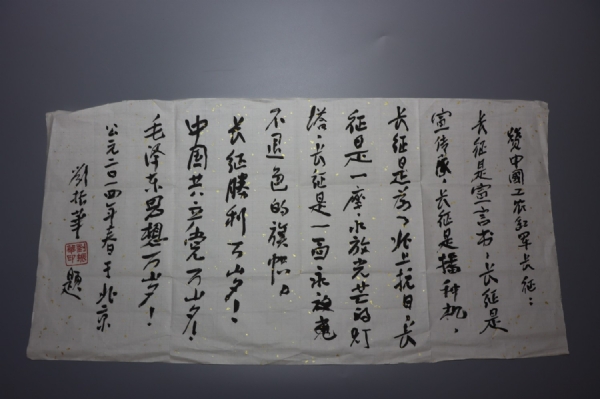 赞中國工农红军长征：
长征是宣言书、长征是
宣传队、长征是播种机、
长征是为了北上抗日、长
征是一座永放光芒的灯
塔、长征是一面永放光
不退色的旗帜。
长征勝利万岁！
中国共产党万岁！
毛泽东思想万岁！
公元二〇一四年春于北京
劉振華 题
劉振華印